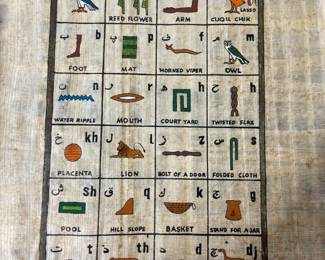 REED FLOWER ARM CUQIL CHIK LASSO
ب b پ p ف f م m
FOOT MAT HORNED VIPER OWL
ن n ر r ه h ح h
WATER RIPPLE MOUTH COURT YARD TWISTED FLAX
خ kh ل l ز z س s
PLACENTA LION BOLT OF A DOOR FOLDED CLOTH
ش sh ق q ك k g
POOL HILL SLOPE BASKET STAND FOR A JAR
ت t th د d dj